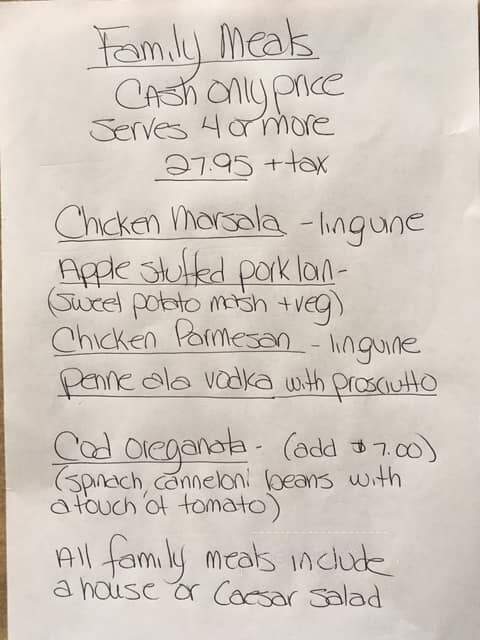 Family Meals
Cash only price
Serves 4 or more
27.95 + tax
Chicken Marsala - lingune
Apple stuffed pork loin -
(sweet potato mash + veg)
Chicken Parmesan - linguine
penne ala vodka with prosciutto
Cod oreganata - (add $7.00)
(spinach, canneloni beans with
a touch of tomato)
All family meals include
a house or Caesar salad